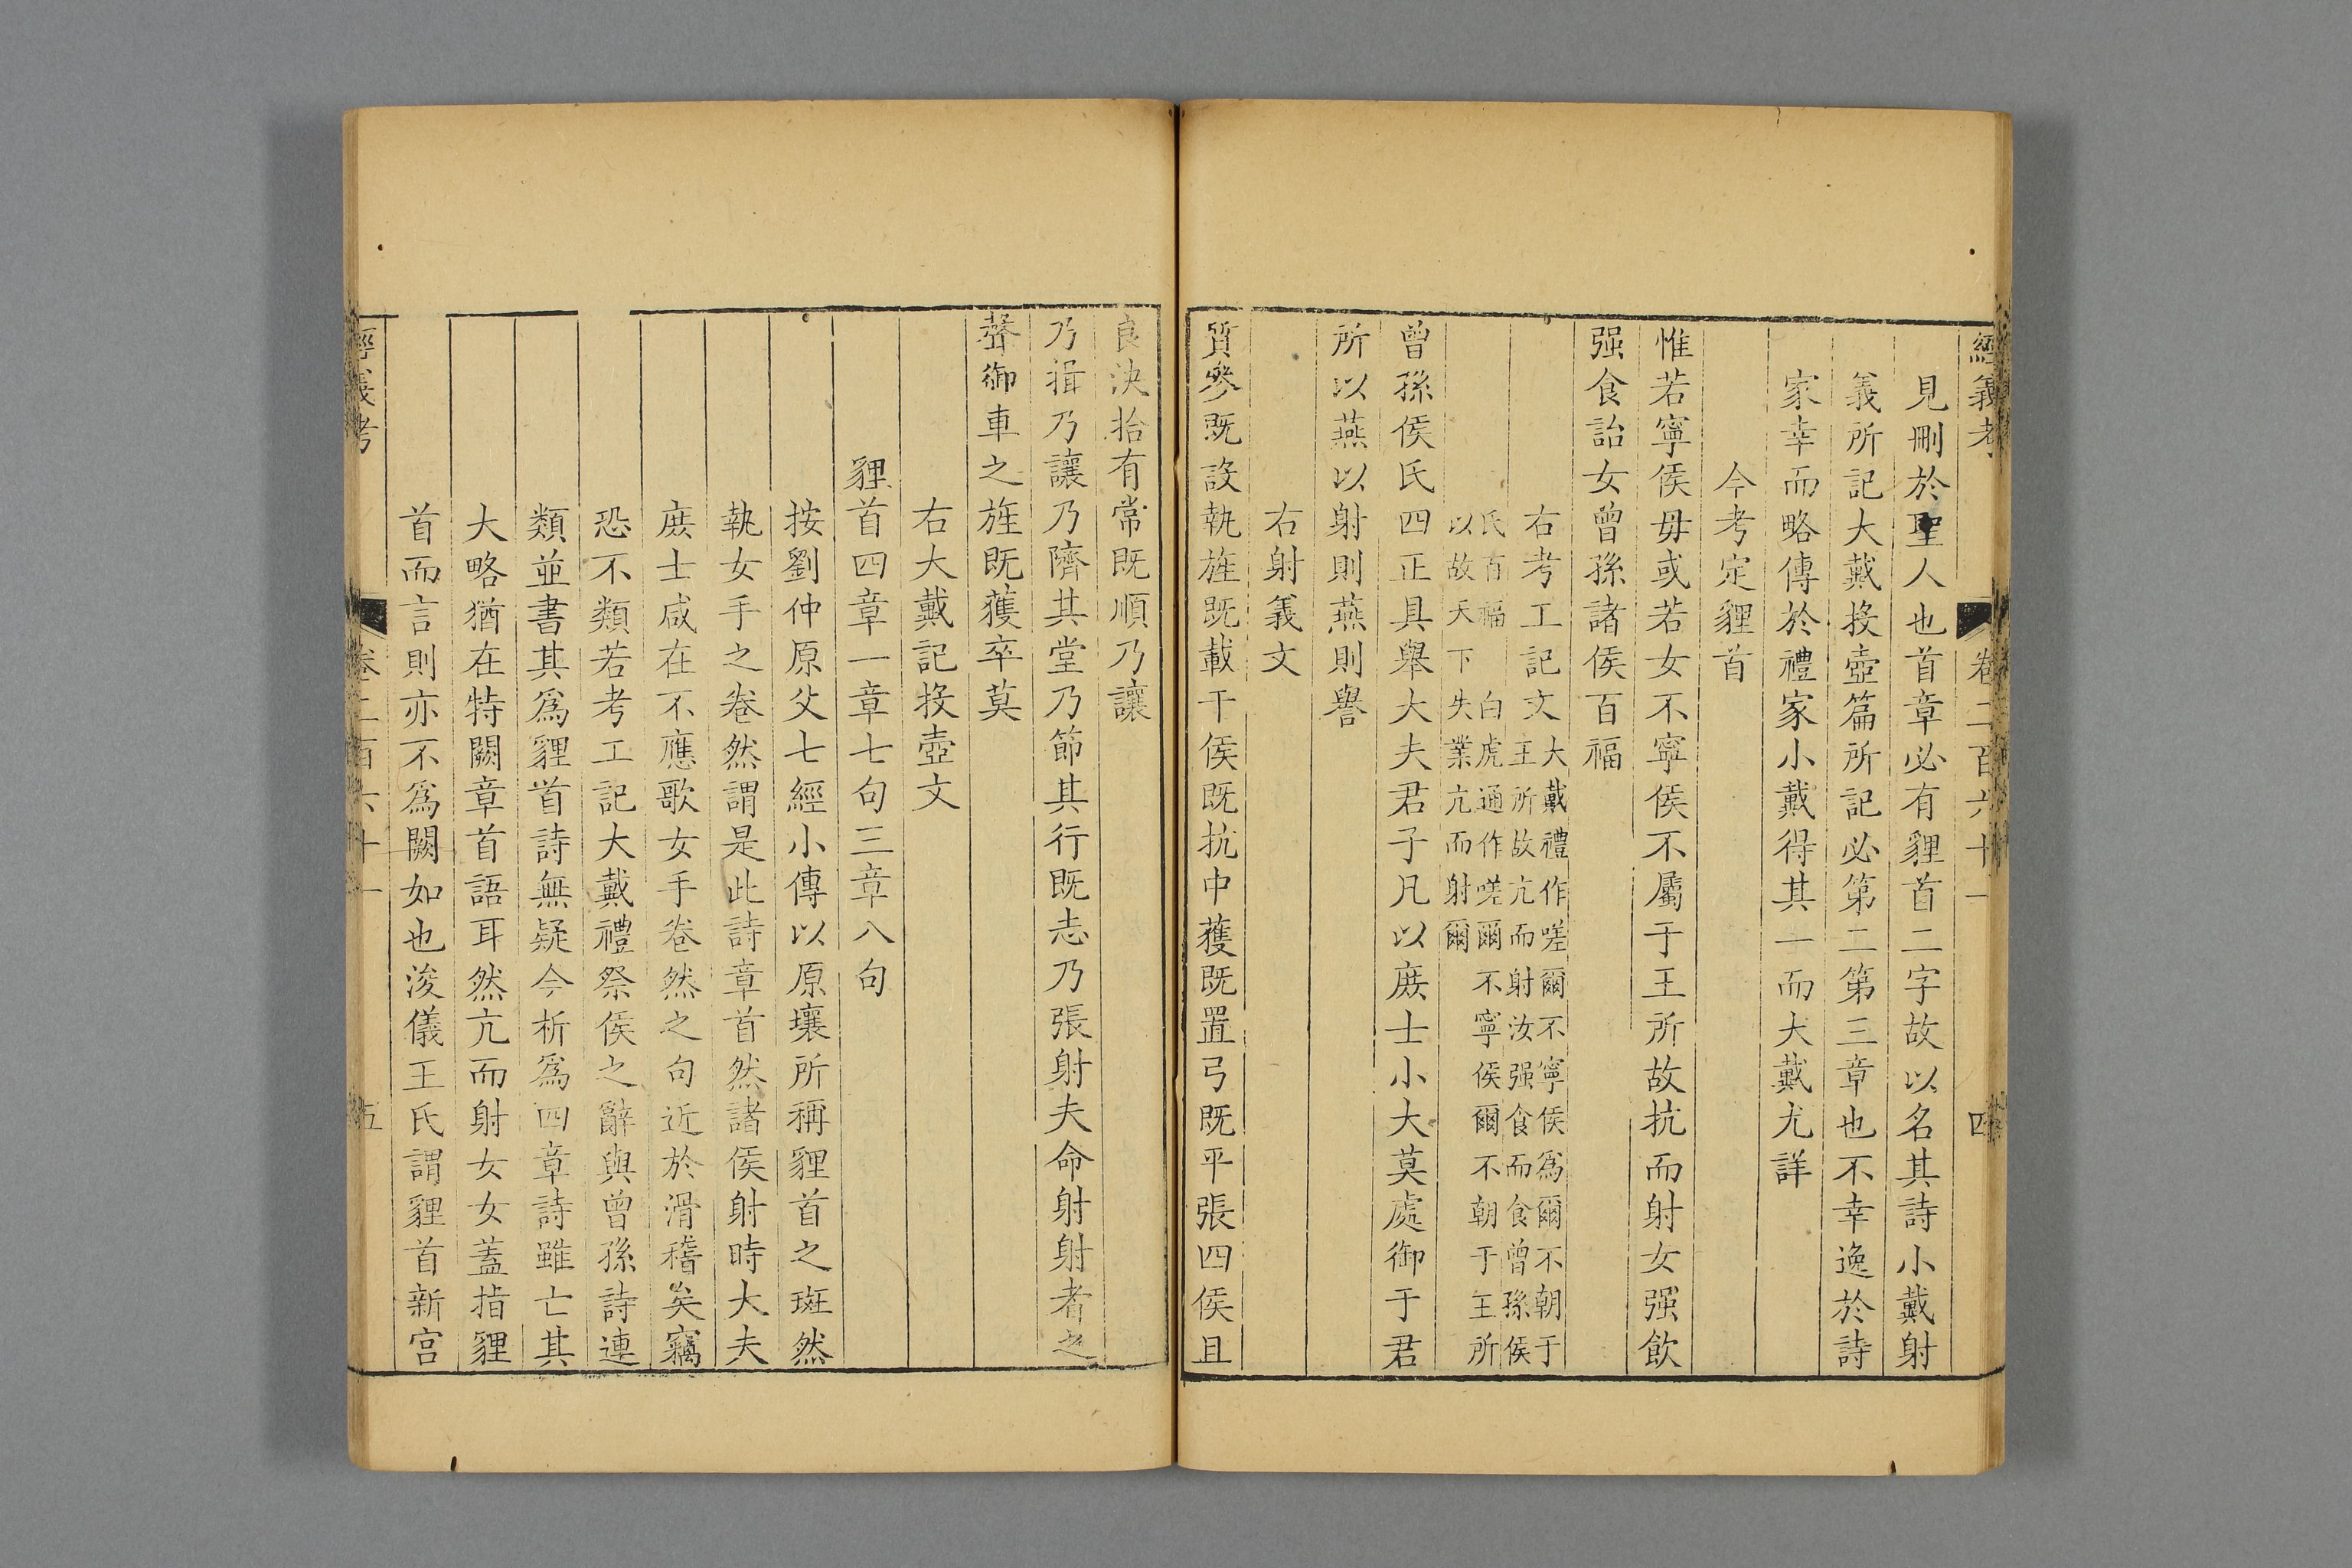 經義考 卷二百六十一 四
見刪於聖人也首章必有貍首二字故以名其詩小戴射
義所記大戴投壺篇所記必第二第三章也不幸逸於詩
家幸而略傳於禮家小戴得其一而大戴尤詳
今考定貍首
惟若寧侯毋或若女不寧侯不屬于王所故抗而射女强飲
强食詒女曾孫諸侯百福
右考工記文大戴禮作嗟爾不寧侯爲爾不朝于
王所故亢而射汝强食而食曾孫侯
氏百福 白虎通作嗟爾不寧侯爾不朝于王所
以故天下失業亢而射爾
曾孫侯氏四正具舉大夫君子凡以庶士小大莫處御于君
所以燕以射則燕則譽
右射義文
質參既設執旌既載干侯既抗中獲既置弓既平張四侯且
良決拾有常既順乃讓
乃揖乃讓乃隮其堂乃節其行既志乃張射夫命射射者之
聲御車之旌既獲卒莫
右大戴記投壺文
貍首四章一章七句三章八句
按劉仲原父七經小傳以原壤所稱貍首之斑然
執女手之卷然謂是此詩章首然諸侯射時大夫
庶士咸在不應歌女手卷然之句近於滑稽矣竊
恐不類若考工記大戴禮祭侯之辭與曾孫詩連
類並書其爲貍首詩無疑今析爲四章詩雖亡其
大略猶在特闕章首語耳然亢而射女女蓋指貍
首而言則亦不爲闕如也浚儀王氏謂貍首新宮
經義考 卷二百六十一 五